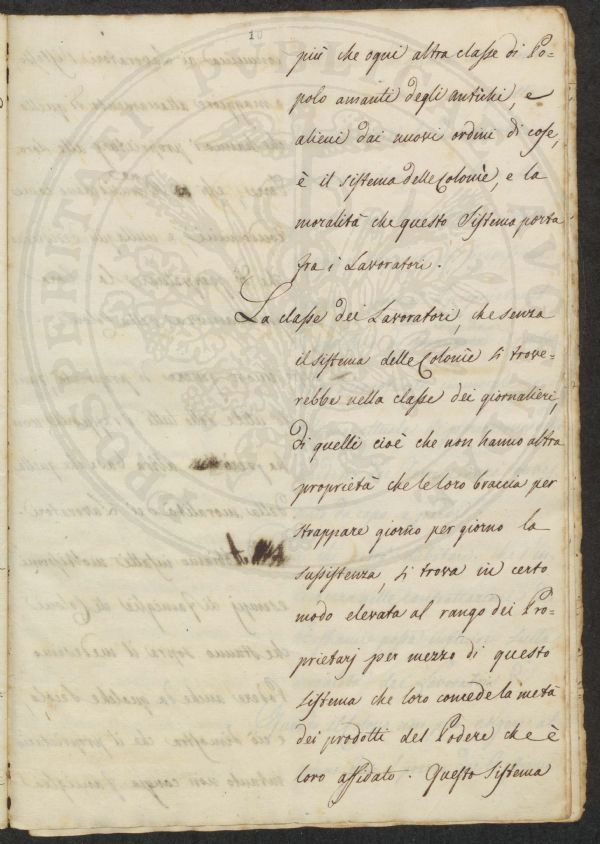 10
più che ogni altra classe di Po=
polo amanti degli antichi, e
alieni dai nuovi ordini di cose,
è il sistema delle Colonìe, e la
moralità che questo Sistema porta
fra i Lavoratori.
La classe dei Lavoratori, che senza
il sistema delle Colonìe si trove=
rebbe nella classe dei giornalieri,
di quelli cioè che non hanno altra
proprietà che le loro braccia per
strappare giorno per giorno la
sussistenza, si trova in certo
modo elevata al rango dei Pro=
prietarj per mezzo di questo
sistema che loro concede la metà
dei prodotti del Podere che è
loro affidato. Questo Sistema